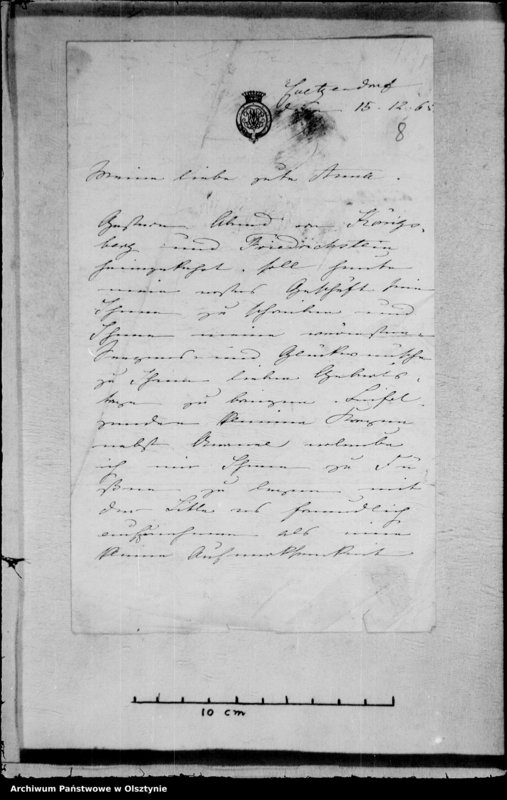 den 15. 12. 65
8
Meine liebe gute Anna.
Gestern Abend von Königs-
berg und Friedrichstein
heimgekehrt, soll heute
mein erstes Geschäft sein
Ihnen zu schreiben und
Ihnen meine wärmsten
Segens- und Glückwünsche
zu Ihrem lieben Geburts-
tage zu bringen.
kleinen Kragen
nebst Ärmel erlaube
ich mir Ihnen zu Fü-
ßen zu legen mit
der Bitte es freundlich
aufzunehmen als eine
kleine Aufmerksamkeit
10 cm
Archiwum Państwowe w Olsztynie